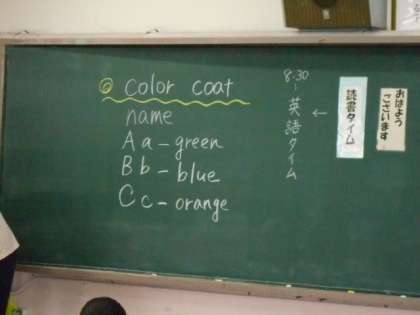 ◎ color coat
name
A a - green
B b - blue
C c - orange
おはよう
ございます
読書タイム
←
8:30-英語タイム